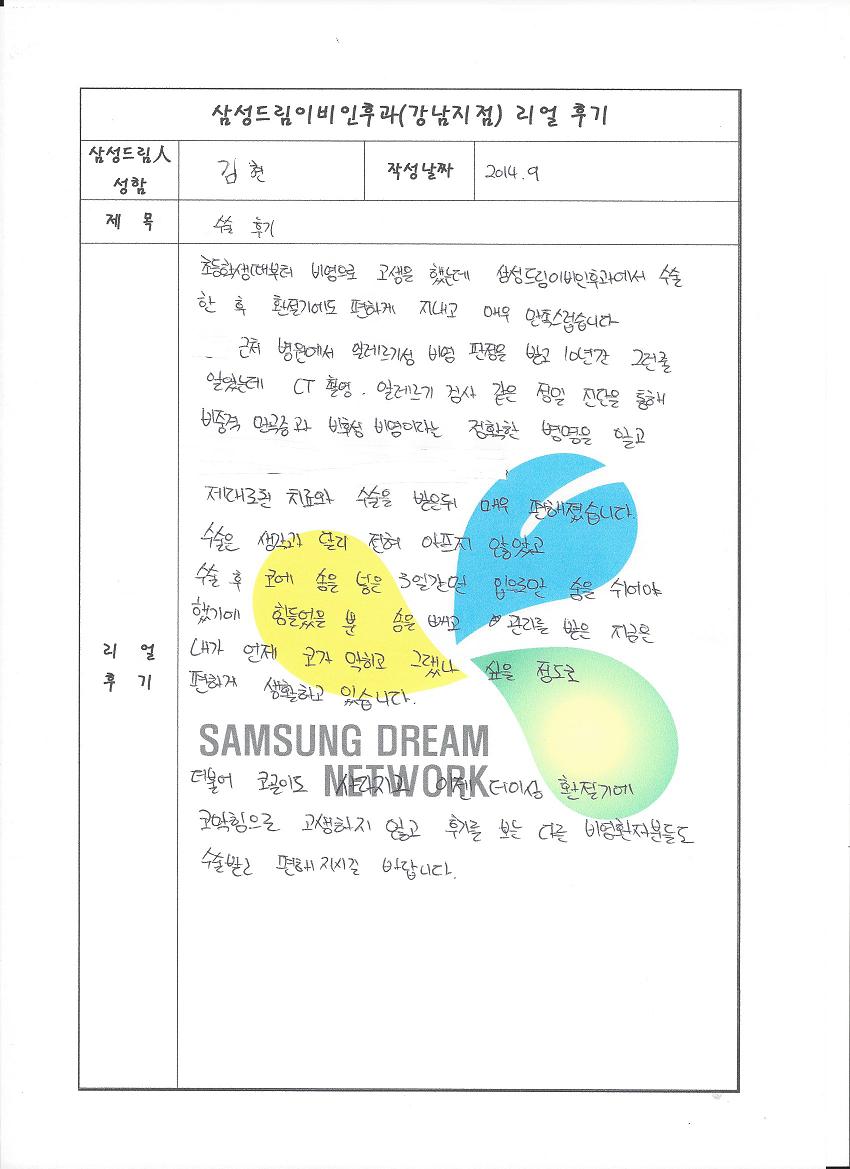 삼성드림이비인후과(강남지점) 리얼 후기
삼성드림人
성함
김현
작성날짜
2014.9
제 목
수술 후기
리 얼
후 기
초등학생때부터 비염으로 고생을 했는데 삼성드림이비인후과에서 수술
한 후 환절기에도 편하게 지내고 매우 만족스럽습니다
근처 병원에서 알레르기성 비염 판정을 받고 10년간 그런줄
알았는데 CT 촬영. 알레르기 검사 같은 정밀 진단을 통해
비중격 만곡증과 비후성 비염이라는 정확한 병명을 알고
제대로된 치료와 수술을 받은뒤 매우 편해졌습니다.
수술은 생각과 달리 전혀 아프지 않았고
수술 후 코에 솜을 넣은 3일간만 입으로만 숨을 쉬어야
했기에 힘들었을 뿐 솜을 빼고 관리를 받은 지금은
내가 언제 코가 막히고 그랬나 싶을 정도로
편하게 생활하고 있습니다.
SAMSUNG DREAM
NETWORK
더불어 코골이도 사라지고 이젠 더이상 환절기에
코막힘으로 고생하지 않고 후기를 보는 다른 비염환자분들도
수술받고 편해지시길 바랍니다.